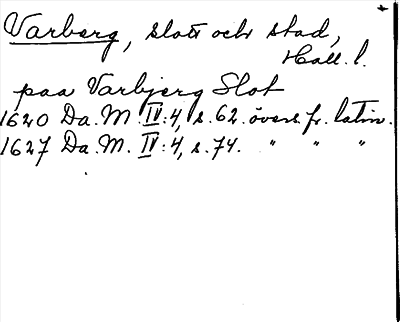 Varberg, slott och stad,
Hall. l.
paa Varbjerg Slot
1620 Da. M IV:4, s. 62. övers. fr. latin.
1627 Da. M. IV:4, s. 74. " " "